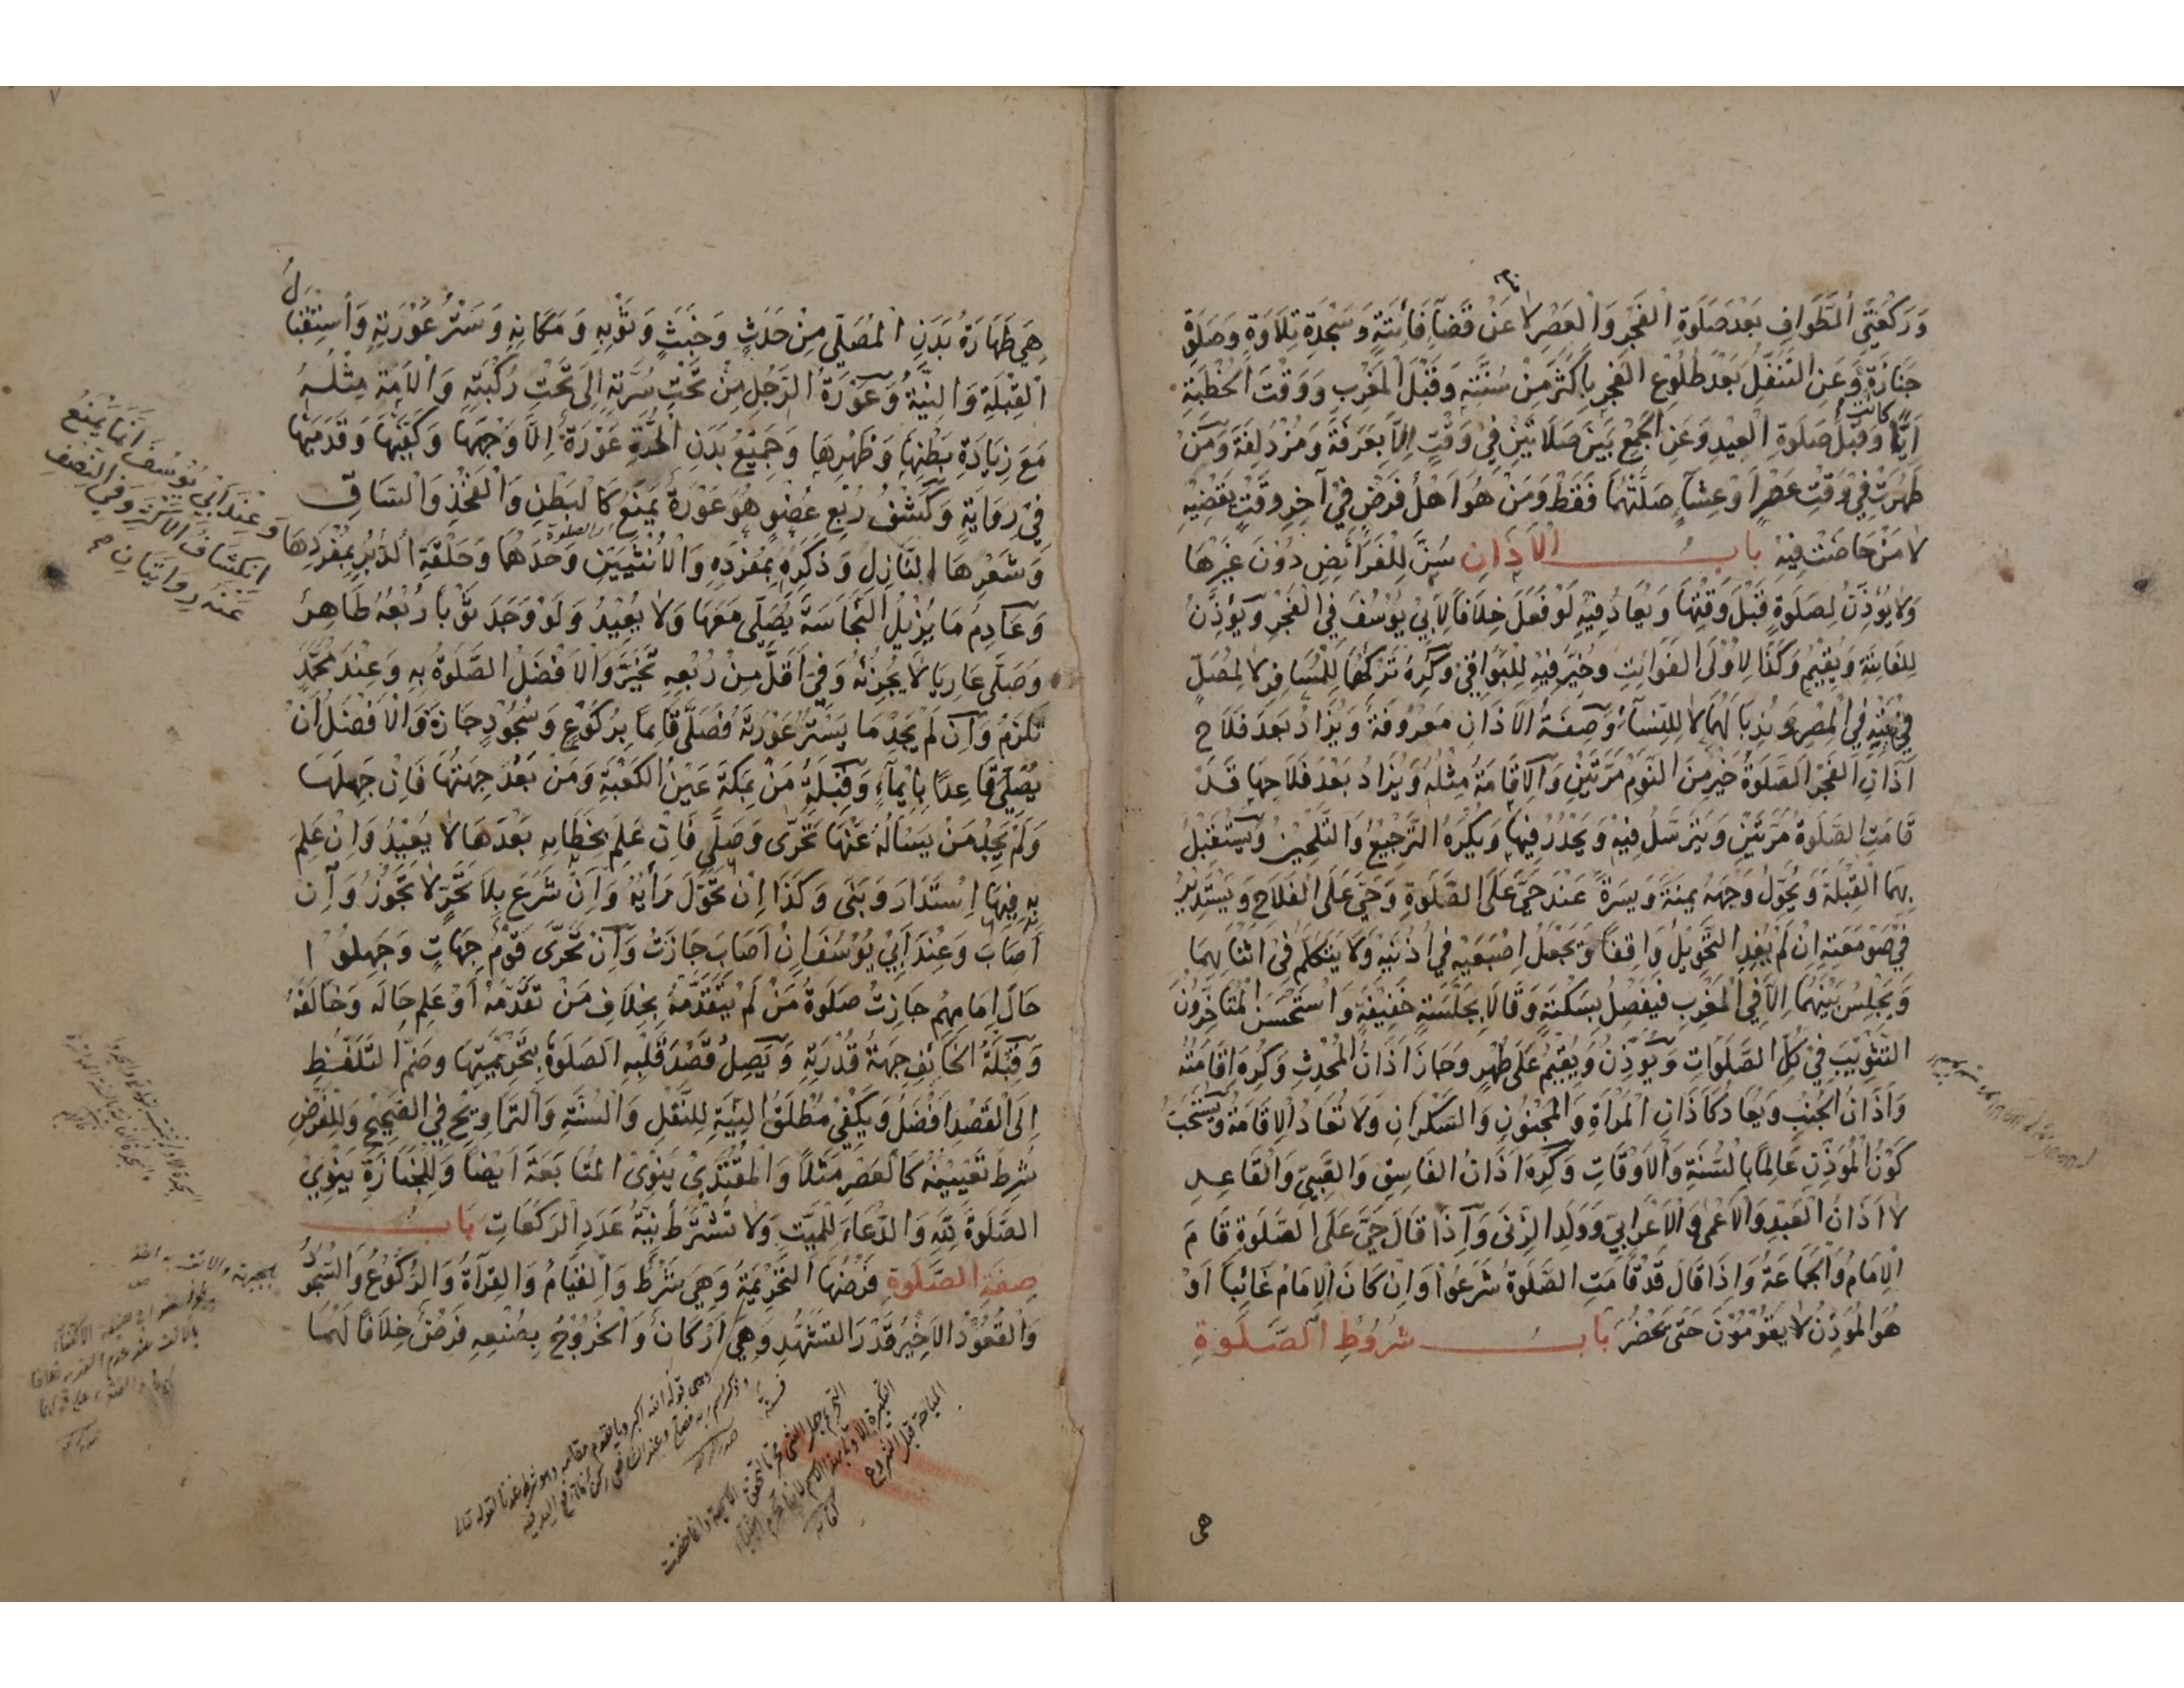 وَرَكْعَتَيِ الطَّوَافِ بَعْدَ صَلَوةِ الْفَجْرِ وَالْعَصْرِ لَا عَنْ قَضَاءِ فَائِتَةٍ وَسَجْدَةِ تِلَاوَةٍ وَصَلَوةِ
جَنَازَةٍ وَعَنِ التَّنَفُّلِ بَعْدَ طُلُوعِ الْفَجْرِ بِاَكْثَرَ مِنْ سُنَّتِهِ وَقَبْلَ الْمَغْرِبِ وَوَقْتَ الْخُطْبَةِ
كانت
اَيًّا وَقَبْلَ صَلَوةِ الْعِيدِ وَعَنِ الْجَمْعِ بَيْنَ صَلَاتَيْنِ فِي وَقْتٍ اِلَّا بِعَرَفَةَ وَمُزْدَلِفَةَ وَمَنْ
طَهُرَتْ فِي وَقْتِ عَصْرٍ اَوْ عِشَاءٍ صَلَّتْهُمَا فَقَطْ وَمَنْ هُوَ اَهْلُ فَرْضٍ فِي آخِرِ وَقْتٍ يَقْضِيهِ
لَا مَنْ حَاضَتْ فِيهِ بَابُ الْاَذَانِ سُنَّ لِلْفَرَائِضِ دُونَ غَيْرِهَا
وَلَا يُؤَذَّنُ لِصَلَوةٍ قَبْلَ وَقْتِهَا وَيُعَادُ فِيهِ لَوْ فَعَلَ خِلَافًا لِاَبِي يُوسُفَ فِي الْفَجْرِ وَيُؤَذِّنُ
لِلْفَائِتَةِ وَيُقِيمُ وَكَذَا لِاُولَى الْفَوَائِتِ وَخُيِّرَ فِيهِ لِلْبَوَاقِي وَكُرِهَ تَرْكُهُمَا لِلْمُسَافِرِ لَا لِمُصَلٍّ
فِي بَيْتِهِ فِي الْمِصْرِ وَنُدِبَا لَهُمَا لَا لِلنِّسَاءِ وَصِفَةُ الْاَذَانِ مَعْرُوفَةٌ وَيُزَادُ بَعْدَ فَلَاحِ
اَذَانِ الْفَجْرِ الصَّلَوةُ خَيْرٌ مِنَ النَّوْمِ مَرَّتَيْنِ وَالْاِقَامَةُ مِثْلُهُ وَيُزَادُ بَعْدَ فَلَاحِهَا قَدْ
قَامَتِ الصَّلَوةُ مَرَّتَيْنِ وَيَتَرَسَّلُ فِيهِ وَيَحْدُرُ فِيهَا وَيُكْرَهُ التَّرْجِيعُ وَالتَّلْحِينُ وَيَسْتَقْبِلُ
بِهِمَا الْقِبْلَةَ وَيُحَوِّلُ وَجْهَهُ يَمْنَةً وَيَسْرَةً عِنْدَ حَيَّ عَلَى الصَّلَوةِ وَحَيَّ عَلَى الْفَلَاحِ وَيَسْتَدِيرُ
فِي صَوْمَعَتِهِ اِنْ لَمْ يُفِدِ التَّحْوِيلُ وَاقِفًا وَيَجْعَلُ اِصْبَعَيْهِ فِي اُذُنَيْهِ وَلَا يَتَكَلَّمُ فِي اَثْنَائِهِمَا
وَيَجْلِسُ بَيْنَهُمَا اِلَّا فِي الْمَغْرِبِ فَيَفْصِلُ بِسَكْتَةٍ وَقَالَا بِجَلْسَةٍ خَفِيفَةٍ وَاسْتَحْسَنَ الْمُتَاَخِّرُونَ
التَّثْوِيبَ فِي كُلِّ الصَّلَوَاتِ وَيُؤَذِّنُ وَيُقِيمُ عَلَى طُهْرٍ وَجَازَ اَذَانُ الْمُحْدِثِ وَكُرِهَ اِقَامَتُهُ
وَاَذَانُ الْجُنُبِ وَيُعَادُ كَاَذَانِ الْمَرْاَةِ وَالْمَجْنُونِ وَالسَّكْرَانِ وَلَا تُعَادُ الْاِقَامَةُ وَيُسْتَحَبُّ
كَوْنُ الْمُؤَذِّنِ عَالِمًا بِالسُّنَّةِ وَالْاَوْقَاتِ وَكُرِهَ اَذَانُ الْفَاسِقِ وَالصَّبِيِّ وَالْقَاعِدِ
لَا اَذَانُ الْعَبْدِ وَالْاَعْمَى وَالْاَعْرَابِيِّ وَوَلَدِ الزِّنَى وَاِذَا قَالَ حَيَّ عَلَى الصَّلَوةِ قَامَ
الْاِمَامُ وَالْجَمَاعَةُ وَاِذَا قَالَ قَدْ قَامَتِ الصَّلَوةُ شَرَعُوا وَاِنْ كَانَ الْاِمَامُ غَائِبًا اَوْ
هُوَ الْمُؤَذِّنُ لَا يَقُومُونَ حَتَّى يَحْضُرَ بَابُ شُرُوطِ الصَّلَوةِ
هى
٧
هِيَ طَهَارَةُ بَدَنِ الْمُصَلِّي مِنْ حَدَثٍ وَخَبَثٍ وَثَوْبِهِ وَمَكَانِهِ وَسَتْرُ عَوْرَتِهِ وَاسْتِقْبَالُ
الْقِبْلَةِ وَالنِّيَّةُ وَعَوْرَةُ الرَّجُلِ مِنْ تَحْتِ سُرَّتِهِ اِلَى تَحْتِ رُكْبَتِهِ وَالْاَمَةُ مِثْلُهُ
مَعَ زِيَادَةِ بَطْنِهَا وَظَهْرِهَا وَجَمِيعُ بَدَنِ الْحُرَّةِ عَوْرَةٌ اِلَّا وَجْهَهَا وَكَفَّيْهَا وَقَدَمَيْهَا
فِي رِوَايَةٍ وَكَشْفُ رُبْعِ عُضْوٍ هُوَ عَوْرَةٌ يَمْنَعُ كَالْبَطْنِ وَالْفَخِذِ وَالسَّاقِ
وَشَعْرِهَا النَّازِلِ وَذَكَرِهِ بِمُفْرَدِهِ وَالْاُنْثَيَيْنِ وَحْدَهُمَا وَحَلْقَةِ الدُّبُرِ بِمُفْرَدِهَا
وَعِنْدَ اَبِي يُوسُفَ اِنَّمَا يَمْنَعُ
اِنْكِشَافُ الْاَكْثَرِ وَفِي النِّصْفِ
عَنْهُ رِوَايَتَانِ
وَعَادِمُ مَا يُزِيلُ النَّجَاسَةَ يُصَلِّي مَعَهَا وَلَا يُعِيدُ وَلَوْ وَجَدَ ثَوْبًا رُبْعُهُ طَاهِرٌ
وَصَلَّى عَارِيًا لَا يُجْزِئُهُ وَفِي اَقَلَّ مِنْ رُبْعِهِ يُخَيَّرُ وَالْاَفْضَلُ الصَّلَوةُ بِهِ وَعِنْدَ مُحَمَّدٍ
تَلْزَمُ وَاِنْ لَمْ يَجِدْ مَا يَسْتُرُ عَوْرَتَهُ فَصَلَّى قَائِمًا بِرُكُوعٍ وَسُجُودٍ جَازَ وَالْاَفْضَلُ اَنْ
يُصَلِّيَ قَاعِدًا بِاِيمَاءٍ وَقِبْلَةُ مَنْ بِمَكَّةَ عَيْنُ الْكَعْبَةِ وَمَنْ بَعُدَ جِهَتُهَا فَاِنْ جَهِلَهَا
وَلَمْ يَجِدْ مَنْ يَسْاَلُهُ عَنْهَا تَحَرَّى وَصَلَّى فَاِنْ عَلِمَ بِخَطَائِهِ بَعْدَهَا لَا يُعِيدُ وَاِنْ عَلِمَ
بِهِ فِيهَا اِسْتَدَارَ وَبَنَى وَكَذَا اِنْ تَحَوَّلَ رَأْيُهُ وَاِنْ شَرَعَ بِلَا تَحَرٍّ لَا تَجُوزُ وَاِنْ
اَصَابَ وَعِنْدَ اَبِي يُوسُفَ اِنْ اَصَابَ جَازَتْ وَاِنْ تَحَرَّى قَوْمٌ جِهَاتٍ وَجَهِلُوا
حَالَ اِمَامِهِمْ جَازَتْ صَلَوةُ مَنْ لَمْ يَتَقَدَّمْهُ بِخِلَافِ مَنْ تَقَدَّمَهُ اَوْ عَلِمَ حَالَهُ وَخَالَفَهُ
وَقِبْلَةُ الْخَائِفِ جِهَةُ قُدْرَتِهِ وَيَصِلُ قَصْدَ قَلْبِهِ الصَّلَوةَ بِتَحْرِيمَتِهَا وَضَمُّ التَّلَفُّظِ
اِلَى الْقَصْدِ اَفْضَلُ وَيَكْفِي مُطْلَقُ النِّيَّةِ لِلنَّفْلِ وَالسُّنَّةِ وَالتَّرَاوِيحِ فِي الصَّحِيحِ وَلِلْفَرْضِ
شُرِطَ تَعْيِينُهُ كَالْعَصْرِ مَثَلًا وَالْمُقْتَدِي يَنْوِي الْمُتَابَعَةَ اَيْضًا وَلِلْجَنَازَةِ يَنْوِي
الصَّلَوةَ لِلّٰهِ وَالدُّعَاءَ لِلْمَيِّتِ وَلَا تُشْتَرَطُ نِيَّةُ عَدَدِ الرَّكَعَاتِ بَابُ
صِفَةِ الصَّلَوةِ فَرْضُهَا التَّحْرِيمَةُ وَهِيَ شَرْطٌ وَالْقِيَامُ وَالْقِرَاءَةُ وَالرُّكُوعُ وَالسُّجُودُ
وَالْقُعُودُ الْاَخِيرُ قَدْرَ التَّشَهُّدِ وَهِيَ اَرْكَانٌ وَالْخُرُوجُ بِصُنْعِهِ فَرْضٌ خِلَافًا لَهُمَا
المباحة قبل الشروع